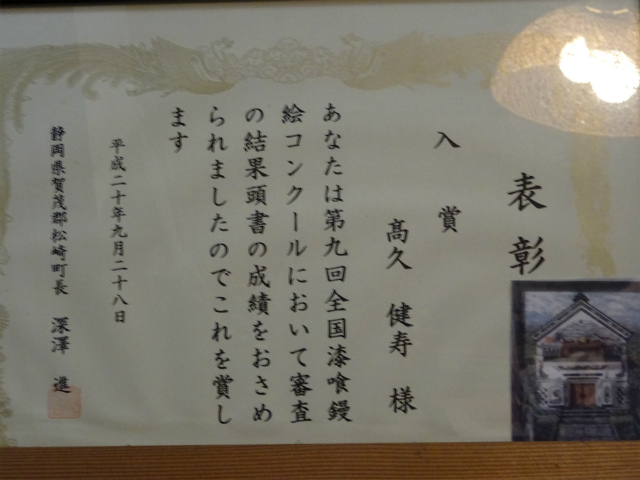 表彰
入賞
髙久 健寿 様
あなたは第九回全国漆喰鏝
絵コンクールにおいて審査
の結果頭書の成績をおさめ
られましたのでこれを賞し
ます
平成二十年九月二十八日
静岡県賀茂郡松崎町長 深澤 進